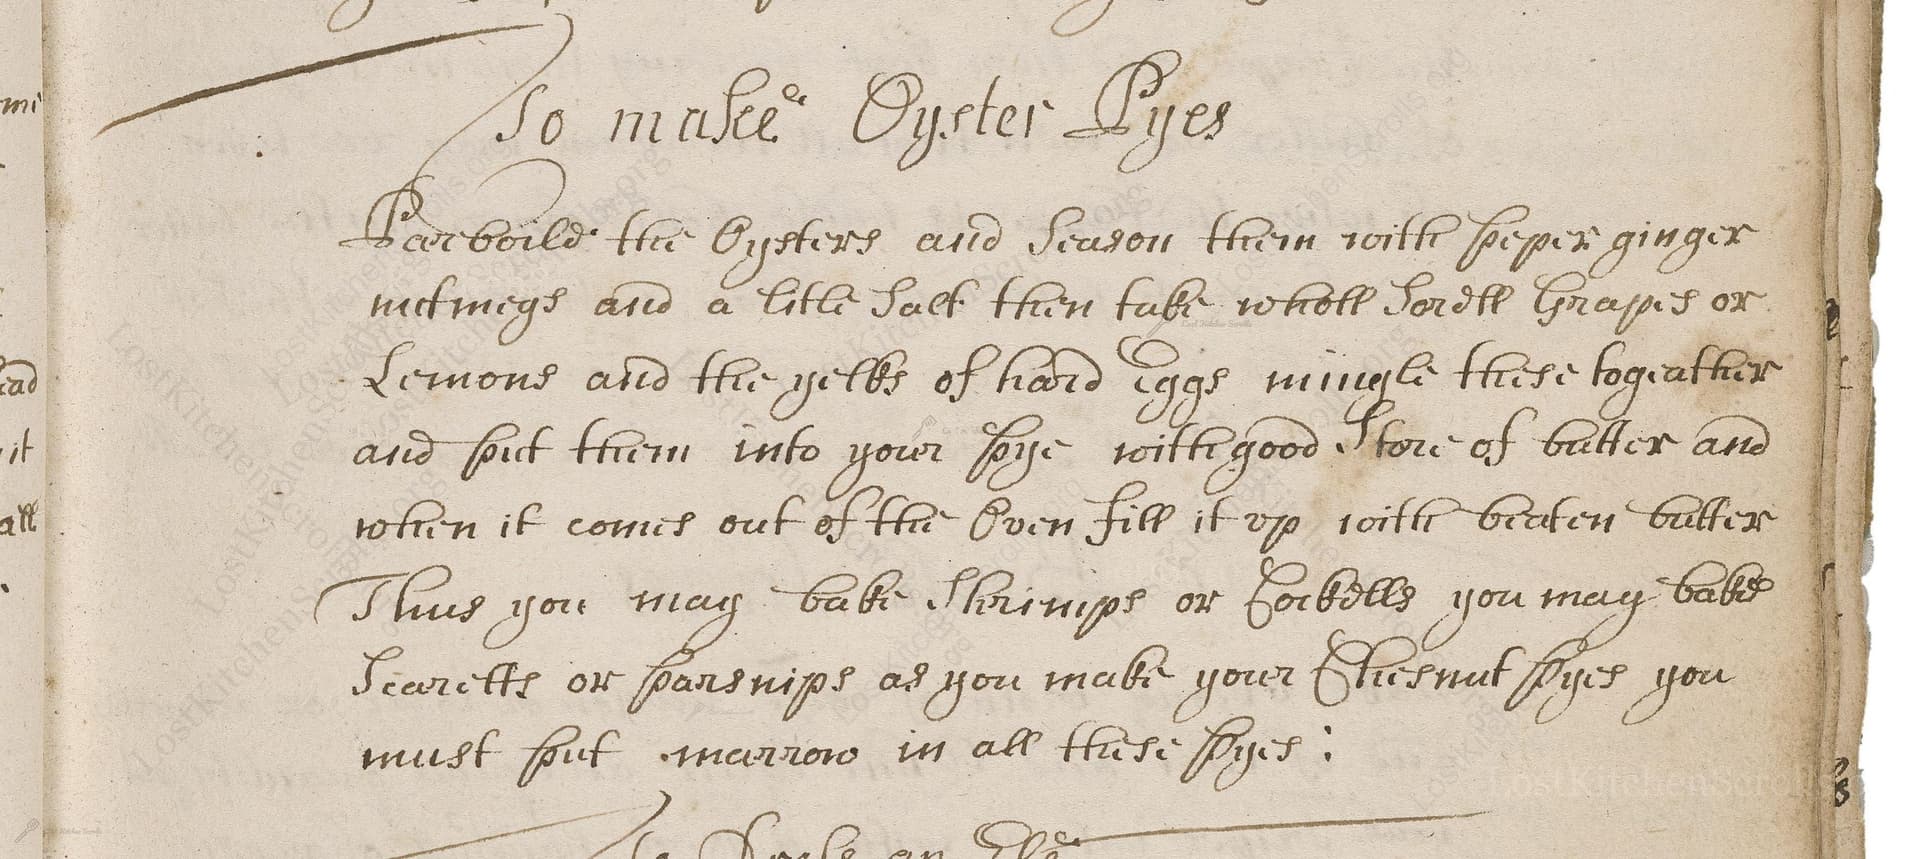 To make Oyster Pyes
Parboile the Oysters and Season them with peper ginger
nutmegs and a litle Salt then take wholl Sorell Grapes or
Lemons and the yelks of hard Eggs mingle these togeather
and put them into your pye with good Store of butter and
when it comes out of the Oven fill it vp with beaten butter
Thus you may bake Shrimps or Cockells you may bake
Scaretts or parsnips as you make your Chesnut pyes you
must put marrow in all these pyes :
an
me
ead
it
all
LostKitchenScrolls